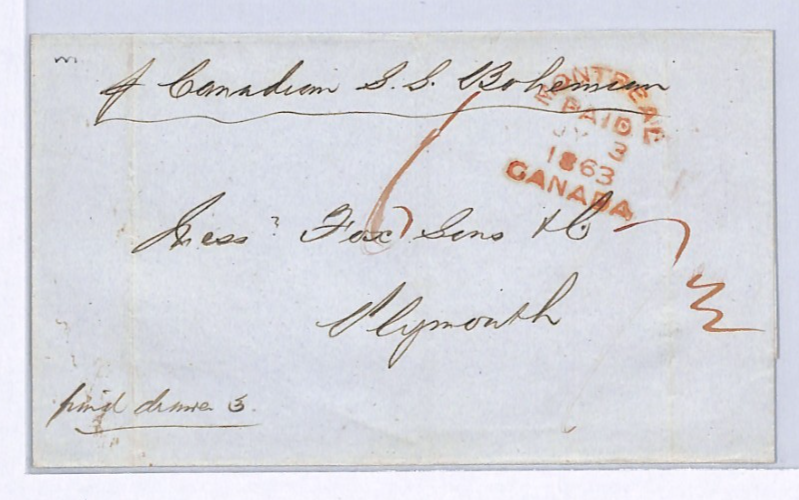 p Canadian S. S. Bohemian
MONTREAL
PAID
JY 3
1863
CANADA
6
Mess.rs Fox Sons & Co
Plymouth
paid drawer 3.